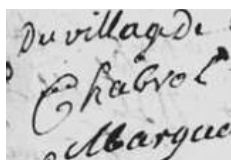 Du village de
Chabrol
Margue